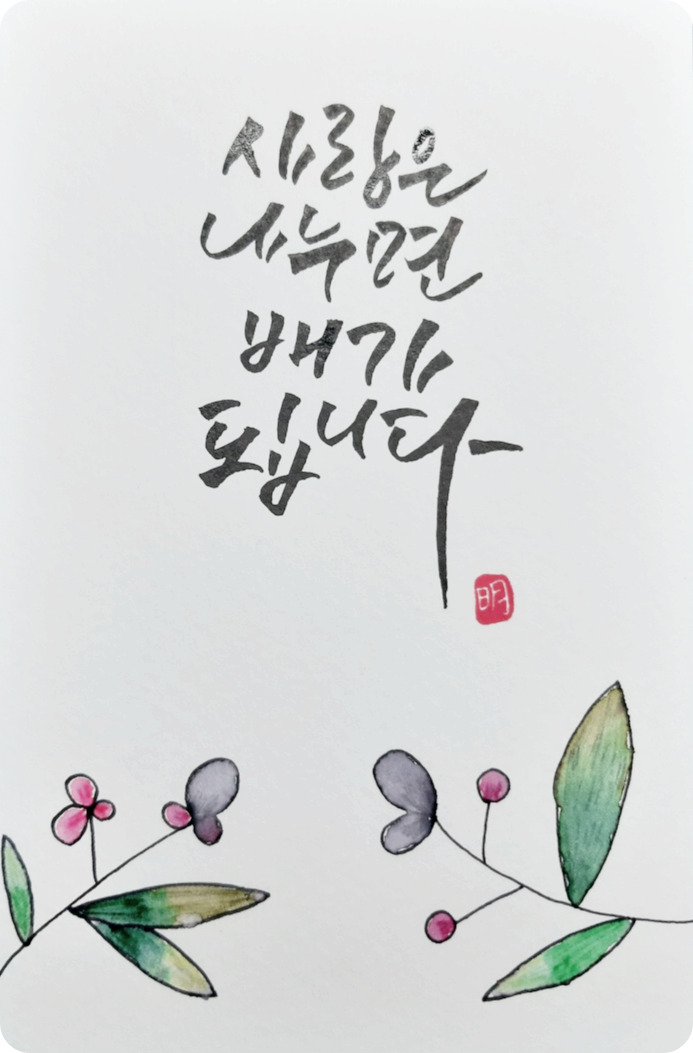 사랑은
나누면
배가
됩니다
明